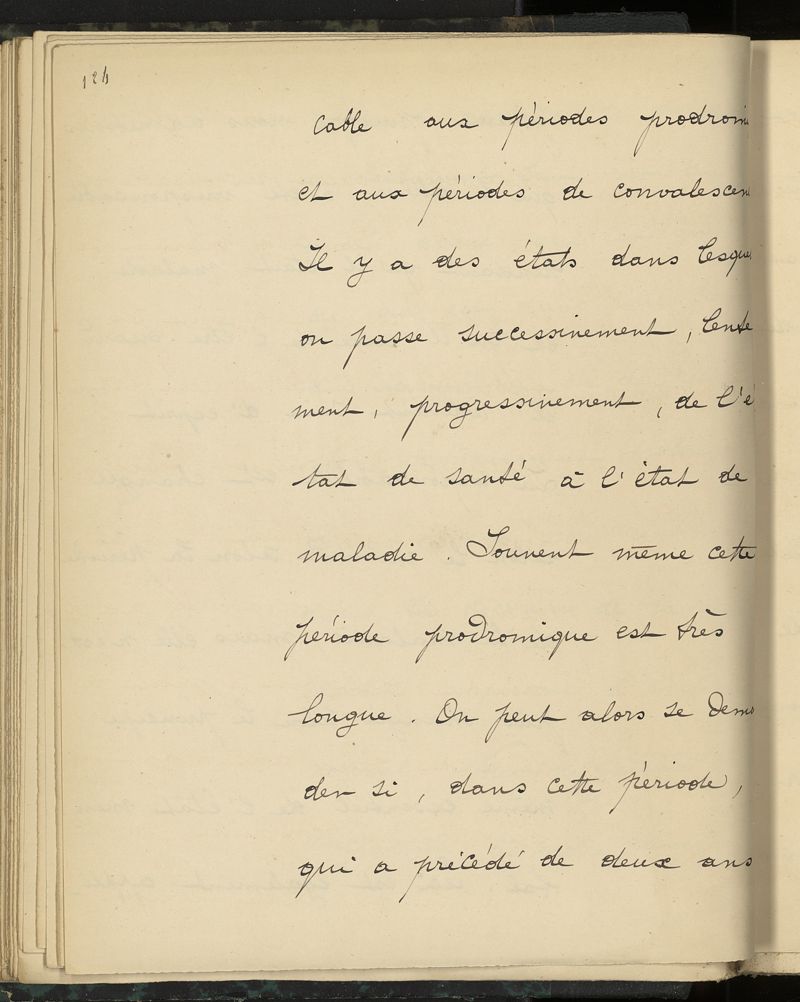 124
cable aux périodes prodromi
et aux périodes de convalescen
Il y a des états dans lesque
on passe successivement, lente
ment, progressivement, de l'é
tat de santé à l'état de
maladie. Souvent même cette
période prodromique est très
longue. On peut alors se deman
der si, dans cette période,
qui a précédé de deux ans